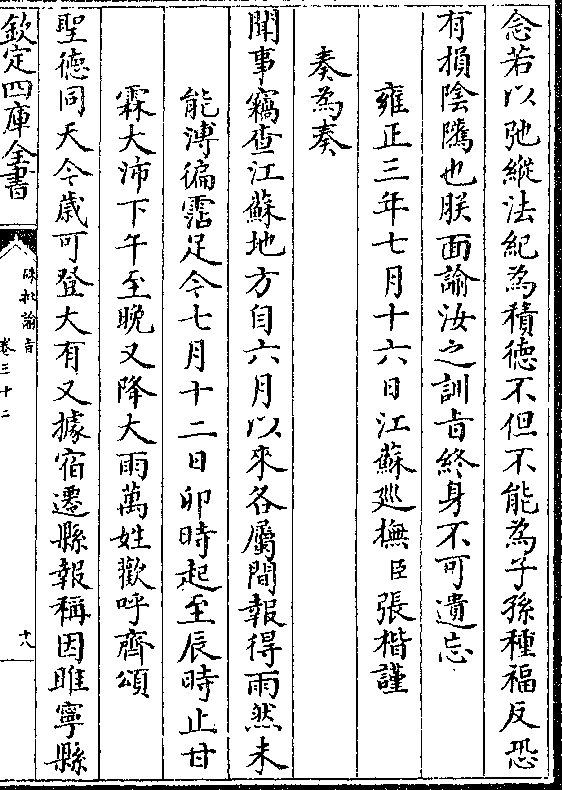 念若以弛縱法紀為積德不但不能為子孫種福反恐
有損陰隲也朕面諭汝之訓旨終身不可遺忘
雍正三年七月十六日江蘇廵撫臣張楷謹
奏為奏
聞事竊查江蘇地方自六月以來各屬間報得雨然未
能溥徧霑足今七月十二日卯時起至辰時止甘
霖大沛下午至晚又降大雨萬姓歡呼齊頌
聖德同天今歳可登大有又據宿遷縣報稱因睢寧縣
欽定四庫全書
硃批諭旨
卷三十二
十八